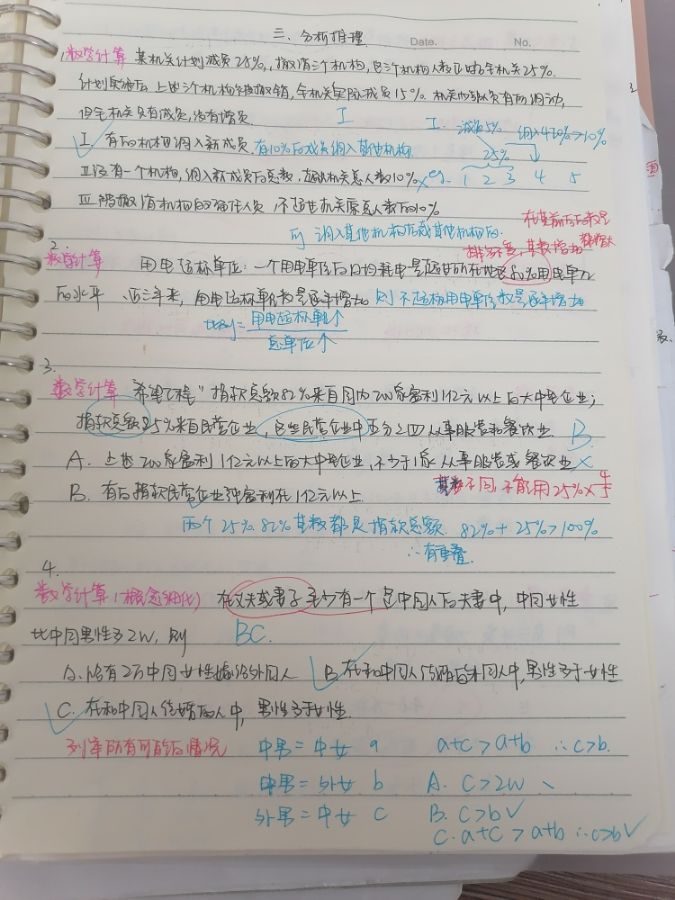 三、分析推理
Date.
No.
1.数学计算 某机关计划减员25%,撤消三个机构,这三个机构人数正好占全机关25%.
计划实施后,上述三个机构全被撤销,全机关实际减员15%.机关内部人员有所调动,
但全机关只有减员,没有增员.
I
I. 减员15% 调入4 10%>10%
25%
I. 有的机构调入新成员.有10%的成员调入其他机构.
II.没有一个机构,调入新成员的总数,超机关总人数10% × eg. 1 2 3 4 5
III 被撤消机构的留任人员,不超过机关原总人数的10%
可 调入其他机构,
2.
数学计算 用电超标单位:一个用电单位的日均耗电量超过所在地区80%用电单位
的水平 近三年来,用电超标单位数量逐年增加 则 不超标用电单位数量逐年增加
比例=用电超标单位个/总单位个
3.
数学计算 "希望工程"捐款总额82%来自国内200家盈利1亿元以上的大中型企业;
捐款总额25%来自民营企业,这些民营企业中五分之四从事服装和餐饮业. B.
A. 上述200家盈利1亿元以上的大中型企业,不少于1家从事服装或餐饮业 ×
B. 有的捐款民营企业 盈利在1亿元以上. 基数不同,不能用25%×4/5
两个 25% 82% 基数都是捐款总额. 82%+25%>100%
∴有重叠.
4.
数学计算(概念细化) 在丈夫或妻子至少有一个是中国人的夫妻中,中国女性
比中国男性多2W,则 BC.
A.恰有2万中国女性嫁给外国人 B.在和中国人结婚的外国人中,男性多于女性
C. 在和中国人结婚的人中,男性多于女性.
列举所有可能的情况 中男=中女 a a+c>a+b ∴c>b.
中男=外女 b A. c>2W
外男=中女 c B. c>b√
C. a+c>a+b ∴c>b√